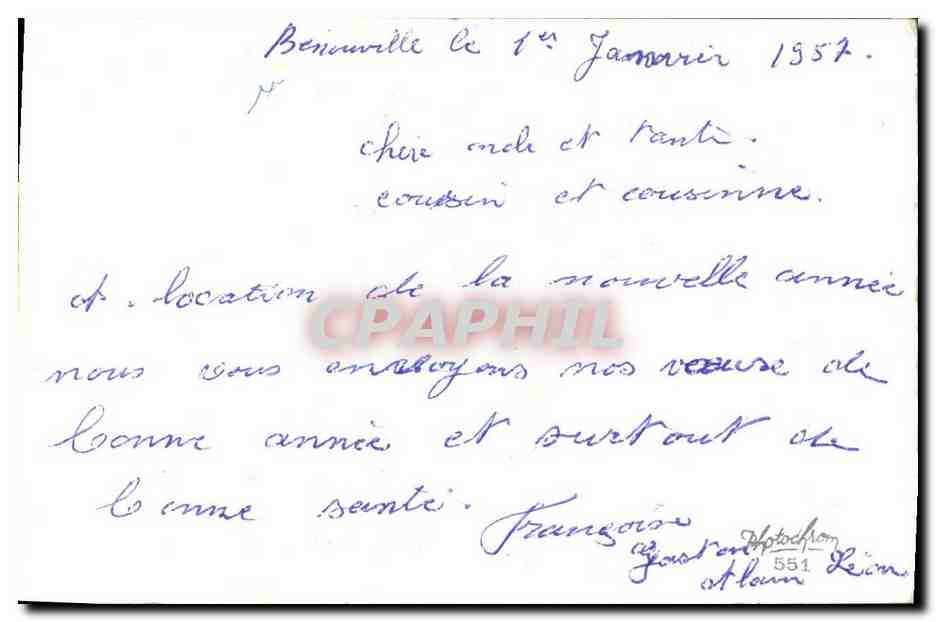 Benouville le 1er Janvier 1957.
chere oncle et tante.
coussin et cousinne.
a l'ocation de la nouvelle année
CPAPHIL
nous vous envoyons nos vœuxe de
bonne année et surtout de
bonne santé.
Françoise
Gaston Photochrom
551 Léon